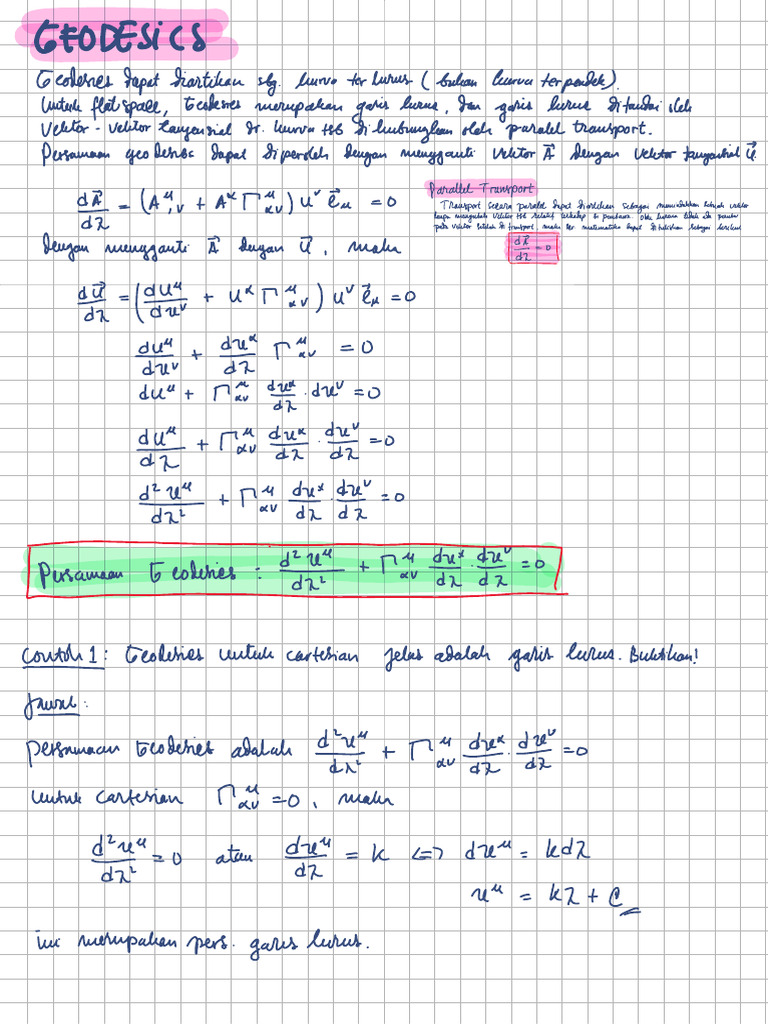 GEODESICS
Geodesics dapat diartikan sbg. kurva ter lurus (bukan kurva terpendek).
Untuk flat space, Geodesics merupakan garis lurus, dan garis lurus ditandai oleh
Vektor-vektor tangensial dr. kurva tsb dihubungkan oleh paralel transport.
Persamaan geodesics dapat diperoleh dengan mengganti vektor A⃗ dengan vektor tangensial U⃗
Parallel Transport
Transport secara paralel dapat diartikan sebagai memindahkan sebuah vektor
tanpa mengubah vektor tsb relatif terhadap
pada vektor setelah di transport, maka secara matematika dapat dituliskan sebagai berikut
dA⃗/dλ = 0
dA⃗/dλ = (A^μ_,ν + A^α Γ^μ_αν) u^ν e⃗_μ = 0
dengan mengganti A⃗ dengan U⃗, maka
dU⃗/dλ = (du^μ/dx^ν + u^α Γ^μ_αν) u^ν e⃗_μ = 0
du^μ/dx^ν + dx^α/dλ Γ^μ_αν = 0
du^μ + Γ^μ_αν dx^α/dλ · dx^ν = 0
du^μ/dλ + Γ^μ_αν dx^α/dλ · dx^ν/dλ = 0
d²x^μ/dλ² + Γ^μ_αν dx^α/dλ · dx^ν/dλ = 0
Persamaan Geodesics : d²x^μ/dλ² + Γ^μ_αν dx^α/dλ · dx^ν/dλ = 0
Contoh 1 : Geodesics untuk cartesian jelas adalah garis lurus. Buktikan!
Jawab :
Persamaan Geodesics adalah d²x^μ/dλ² + Γ^μ_αν dx^α/dλ · dx^ν/dλ = 0
Untuk cartesian Γ^μ_αν = 0, maka
d²x^μ/dλ² = 0 atau dx^μ/dλ = k <=> dx^μ = kdλ
x^μ = kλ + C
ini merupakan pers. garis lurus.